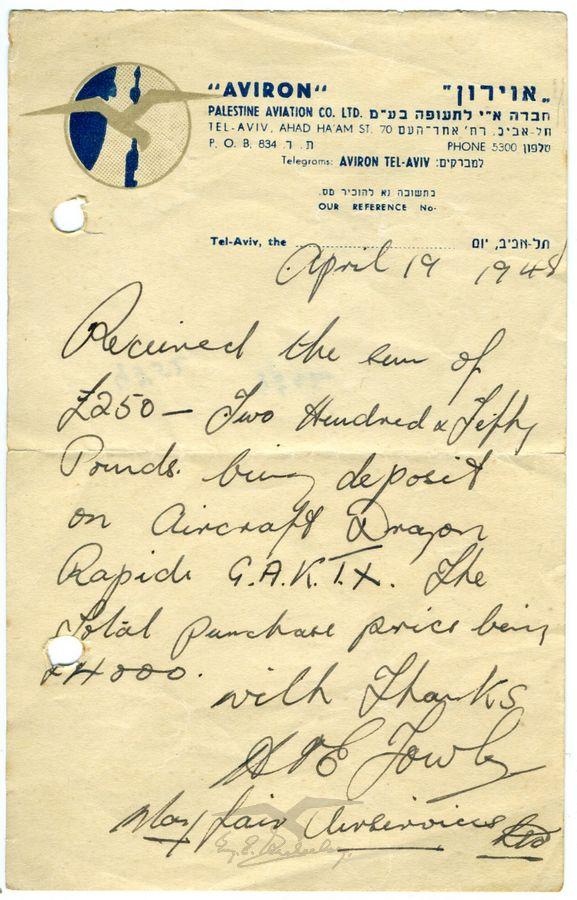 "AVIRON"
„אוירון"
PALESTINE AVIATION CO. LTD. חברה א"י לתעופה בע"מ
TEL-AVIV, AHAD HA'AM ST. 70 תל-אביב, רח' אחד-העם
P. O. B. 834 ת. ד.
PHONE 5300 טלפון
Telegrams: AVIRON TEL-AVIV למברקים:
בתשובה נא להזכיר מס.
OUR REFERENCE No.
Tel-Aviv, the תל-אביב, יום
April 19 1948
Received the sum of
£250 — Two Hundred & Fifty
Pounds. being deposit
on Aircraft Dragon
Rapide G.A.K.T.X. The
Total purchase price being
£4000.
with Thanks
Mayfair Airservices Ltd